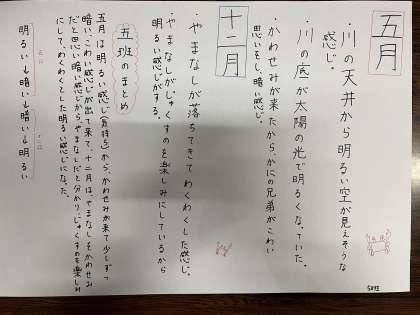 五月
・川の天井から明るい空が見えそうな
感じ。
・川の底が太陽の光で明るくなっていた。
・かわせみが来たから、かにの兄弟がこわい
思いをし、暗い感じ。
十二月
・やまなしが落ちてきてわくわくした感じ。
・やまなしがじゅくすのを楽しみにしているから
明るい感じがする。
五班のまとめ
五月は明るい感じ(気持ち)から、かわせみが来て少しずつ
暗い、こわい感じが出て来て、十二月は、やまなしをかわせみ
だと思い暗い感じから、やまなしだと分かり、じゅくすのを楽しみ
にして、わくわくとした明るい感じになった。
明るい→暗い→暗い→明るい